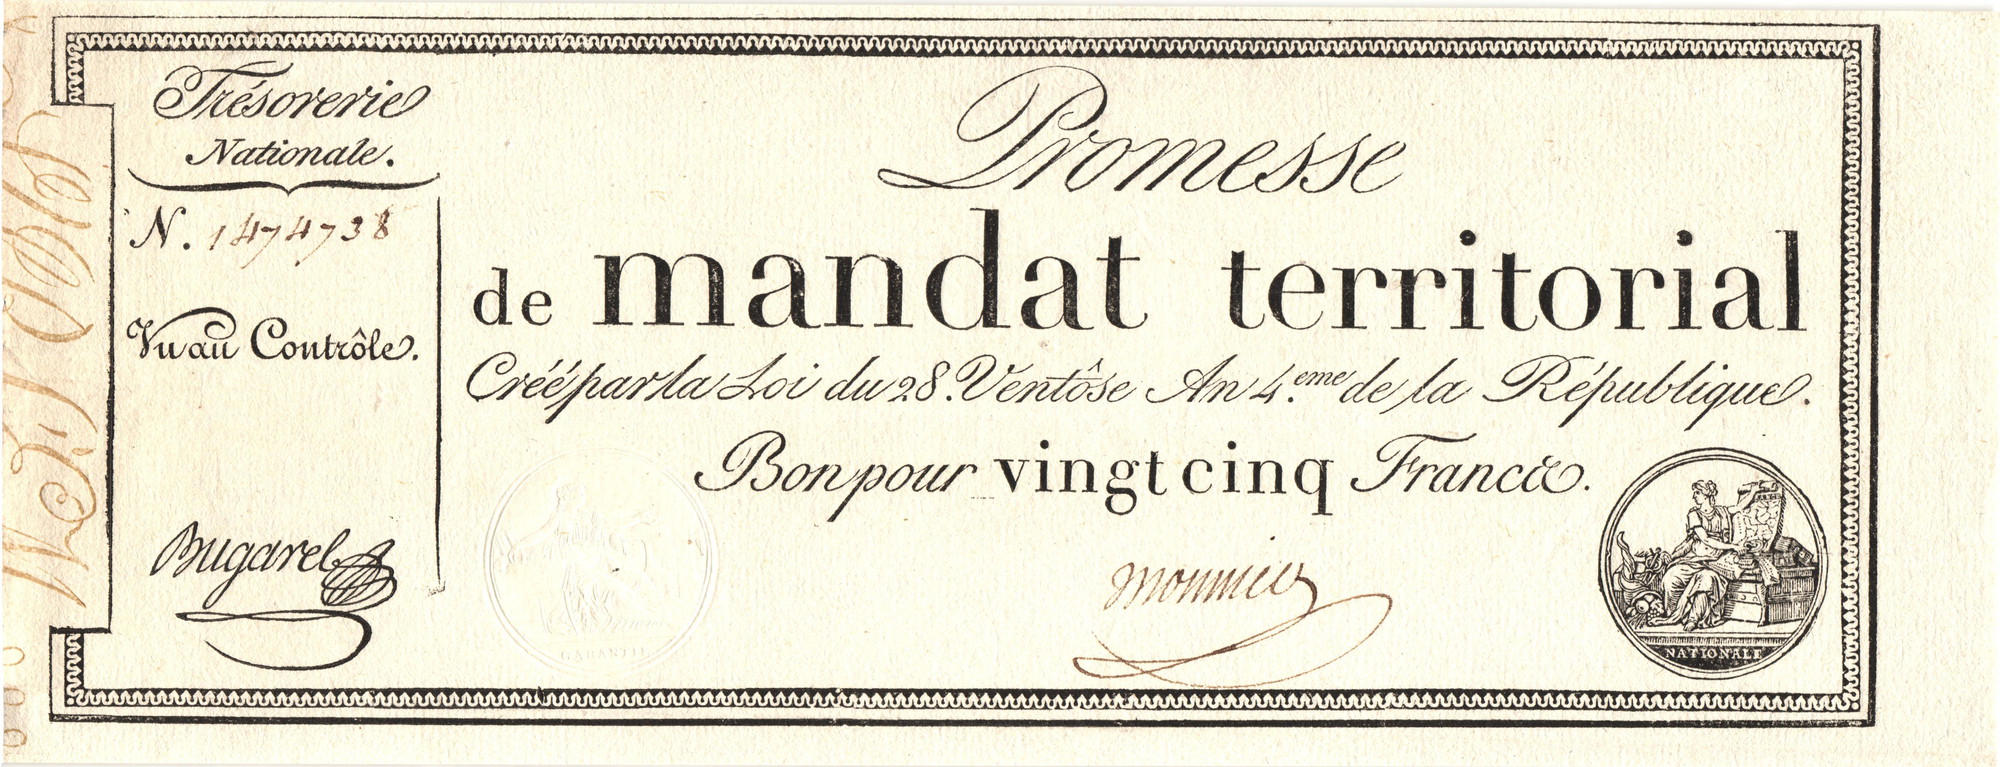 Trésorerie
Nationale.
N. 1474738
Vu au Contrôle.
Bugarel
Promesse
de mandat territorial
Créé par la Loi du 28. Ventôse An 4.eme de la République.
Bon pour vingt cinq Francs.
monnier
GARANTIE
NATIONALE